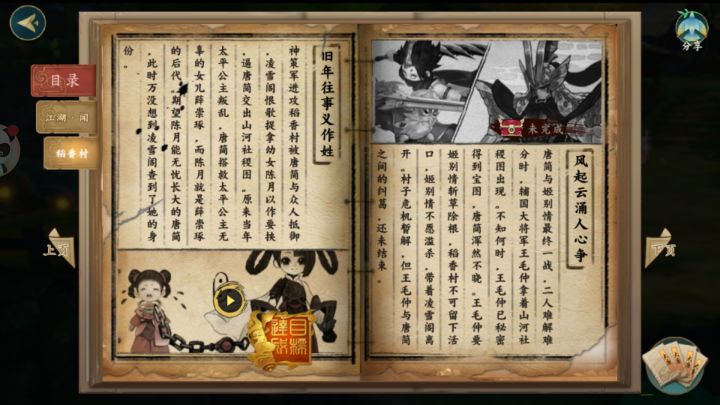 分享
目录
江湖·闻
稻香村
上页
下页
旧年往事义作姓
神策军进攻稻香村被唐简与众人抵御
，凌雪阁恨歌捉拿幼女陈月以作要挟
，逼唐简交出山河社稷图。原来当年
太平公主叛乱，唐简搭救太平公主无
辜的女儿薛崇琢，而陈月就是薛崇琢
的后代。期望陈月能无忧长大的唐简
，此时万没想到凌雪阁查到了她的身
份。
目标
達成
未完成
风起云涌人心争
唐简与姬别情最终一战，二人难解难
分时，辅国大将军王毛仲拿着山河社
稷图出现。不知何时，王毛仲已秘密
得到宝图，唐简浑然不晓。王毛仲要
姬别情斩草除根，稻香村不可留下活
口，姬别情不愿滥杀，带着凌雪阁离
开。村子危机暂解，但王毛仲与唐简
之间的纠葛，还未结束。